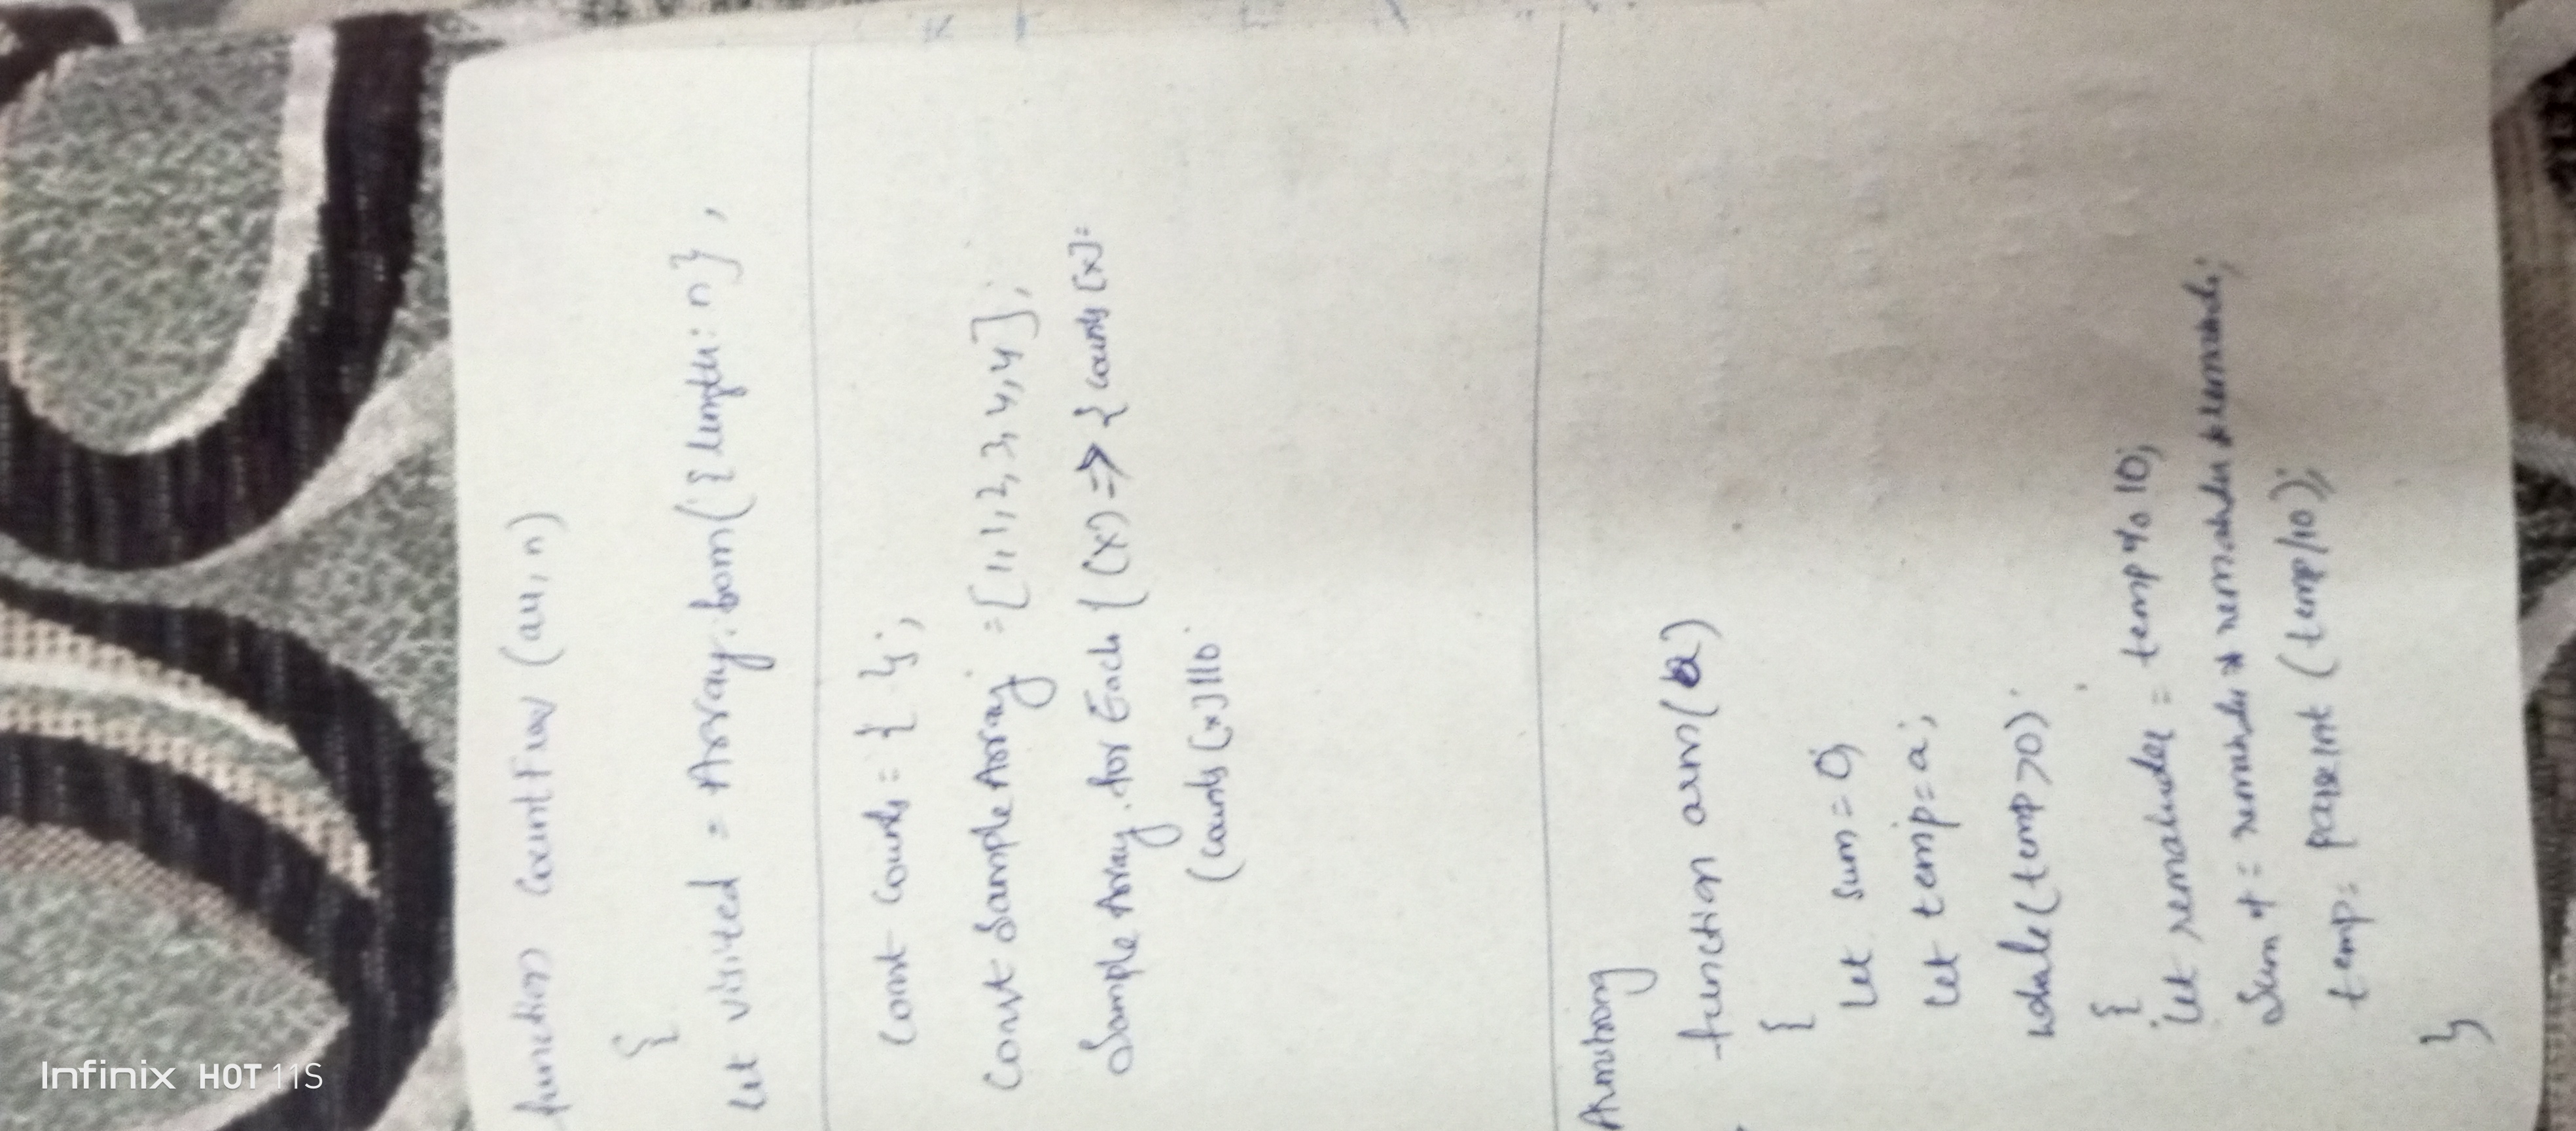 function countFrev (arr, n)
{
let visited = Array.from({length: n},
const counts = { };
const SampleArray = [1, 1, 2, 3, 4, 4];
SampleArray.forEach ((x) => { counts[x]=
(counts[x]||0
Armstrong
function arm(a)
{
let sum=0;
let temp=a;
while(temp>0)
{
let remainder = temp%10;
Sum += remainder * remainder * remainder;
temp= parseint (temp/10);
}
Infinix HOT 11S